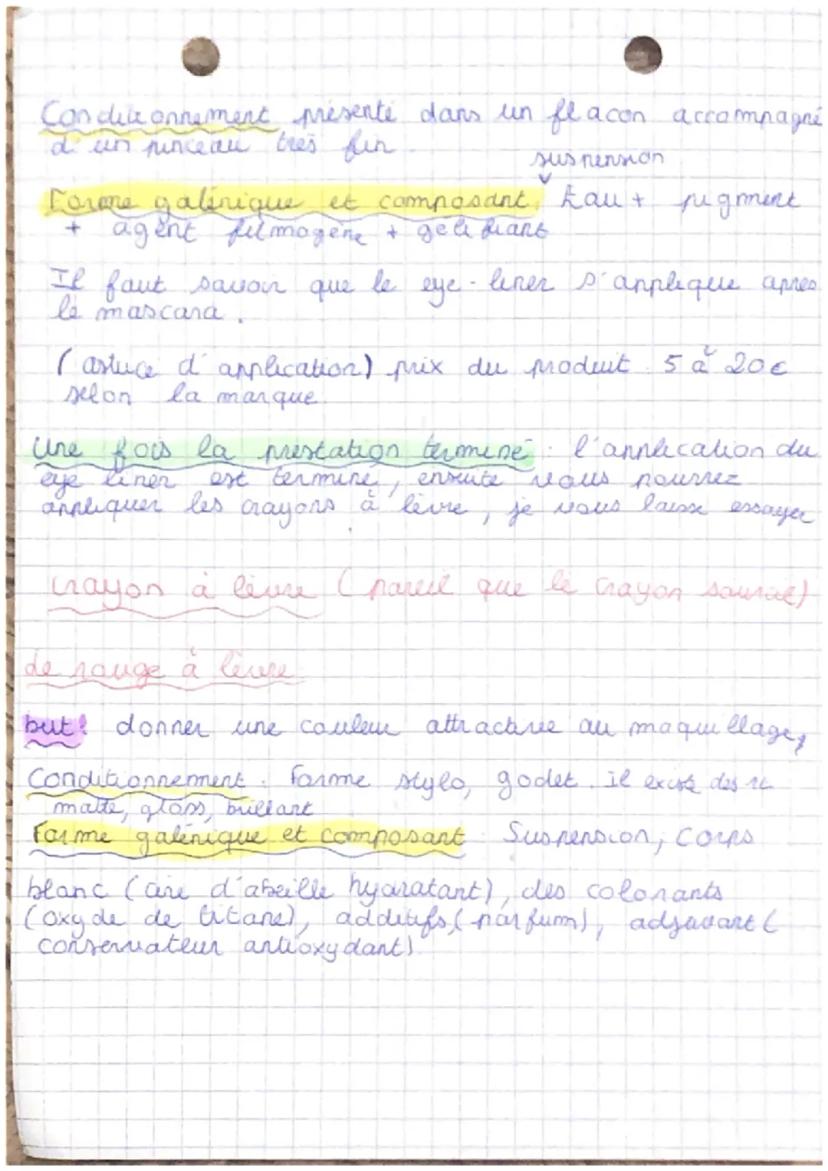 Conditionnement présenté dans un flacon accompagné
d'un pinceau très fin.
suspension
Forme galénique et composant Eau + pigment
+ agent filmogène + gélifiant
Il faut savoir que le eye-liner s'applique après
le mascara.
(astuce d'application) prix du produit 5 à 20€
selon la marque.
Une fois la prestation terminé : l'application du
eye liner est terminé, ensuite vous pourrez
appliquer les crayons à lèvre, je vous laisse essayer
crayon à lèvre (pareil que le crayon sourcil)
de rouge à lèvre
but: donner une couleur attractive au maquillage,
Conditionnement : Forme stylo, godet. Il existe des
matte, gloss, brillant
Forme galénique et composant : Suspension, corps
blanc (cire d'abeille hydratant), des colorants
(oxyde de titane), additifs, (parfum), adjuvant (
conservateur antioxydant)